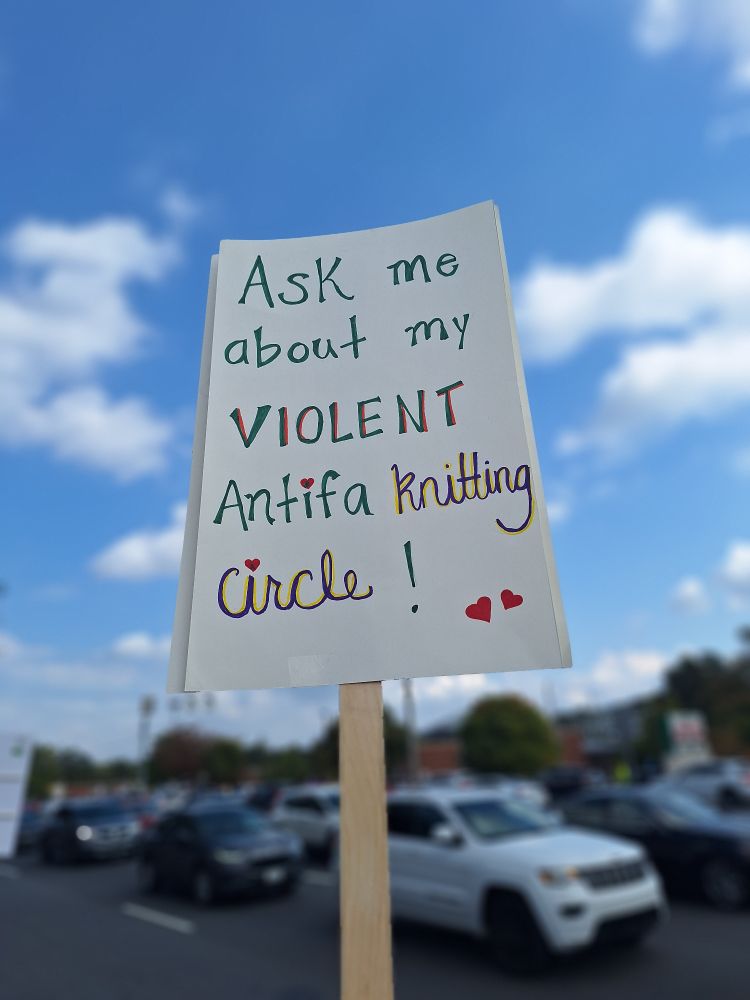 Ask me
about my
VIOLENT
Antifa knitting
circle !